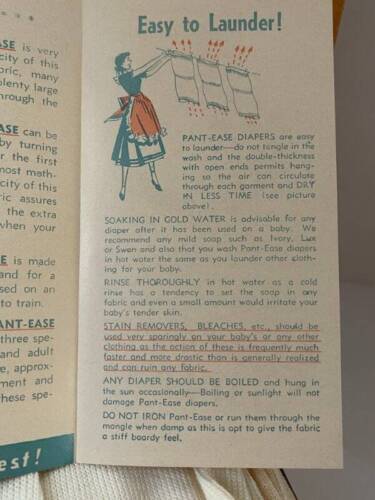 EASE is very
city of this
bric, many
plenty large
through the
EASE can be
by turning
r the first
most math-
city of this
ic assures
the extra
when your
E is made
and for a
sed on an
to train.
ANT-EASE
three spe-
and adult
e, approx-
ment and
hese spe-
est!
Easy to Launder!
PANT-EASE DIAPERS are easy
to launder—do not tangle in the
wash and the double-thickness
with open ends permits hang-
ing so the air can circulate
through each garment and DRY
IN LESS TIME (see picture
above).
SOAKING IN COLD WATER is advisable for any
diaper after it has been used on a baby. We
recommend any mild soap such as Ivory, Lux
or Swan and also that you wash Pant-Ease diapers
in hot water the same as you launder other cloth-
ing for your baby.
RINSE THOROUGHLY in hot water as a cold
rinse has a tendency to set the soap in any
fabric and even a small amount would irritate your
baby's tender skin.
STAIN REMOVERS, BLEACHES, etc., should be
used very sparingly on your baby's or any other
clothing as the action of these is frequently much
faster and more drastic than is generally realized
and can ruin any fabric.
ANY DIAPER SHOULD BE BOILED and hung in
the sun occasionally—Boiling or sunlight will not
damage Pant-Ease diapers.
DO NOT IRON Pant-Ease or run them through the
mangle when damp as this is apt to give the fabric
a stiff boardy feel.